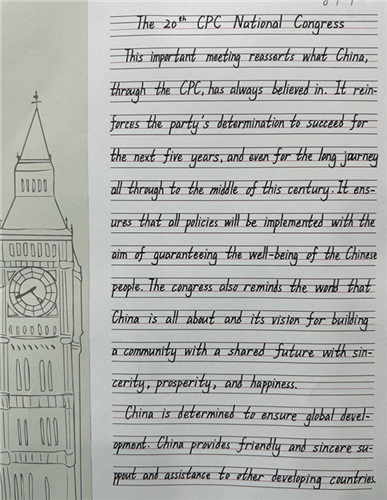 The 20th CPC National Congress
This important meeting reasserts what China,
through the CPC, has always believed in. It rein-
forces the party's determination to succeed for
the next five years, and even for the long journey
all through to the middle of this century. It ens-
ures that all policies will be implemented with the
aim of guaranteeing the well-being of the Chinese
people. The congress also reminds the world that
China is all about and its vision for building
a community with a shared future with sin-
cerity, prosperity, and happiness.
China is determined to ensure global devel-
opment. China provides friendly and sincere su-
ppout and assistance to other developing countries